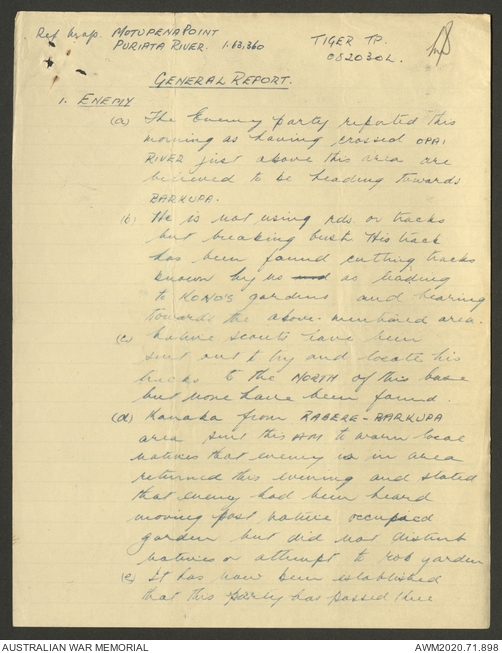 Ref Map. MOTUPENA POINT
PURIATA RIVER. 1.63,360
TIGER TP.
082030L.
GENERAL REPORT.
1. ENEMY
(a) The Enemy party reported this
morning as having crossed OPAI
RIVER just above this area are
believed to be heading towards
BARKUPA.
(b) He is not using rds. or tracks
but breaking bush. His track
has been found cutting tracks
known by us and as leading
to KONO'S gardens and bearing
towards the above-mentioned area.
(c) Native scouts have been
sent out to try and locate his
tracks to the NORTH of this base
but none have been found.
(d) Kanaka from RABERE-BARKUPA
area sent this AM to warn local
natives that enemy is in area
returned this evening and stated
that enemy had been heard
moving past native occupied
garden but did not disturb
natives or attempt to rob garden
(e) It has now been established
that this party has passed thru
AUSTRALIAN WAR MEMORIAL
AWM2020.71.898